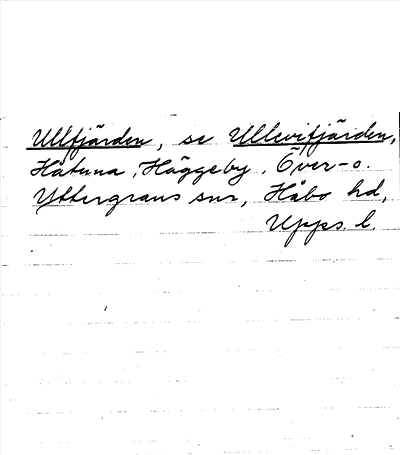 Ullfjärden, se Ullevifjärden,
Håtuna, Häggeby, Över- o.
Yttergrans snr, Håbo hd,
Upps. l.